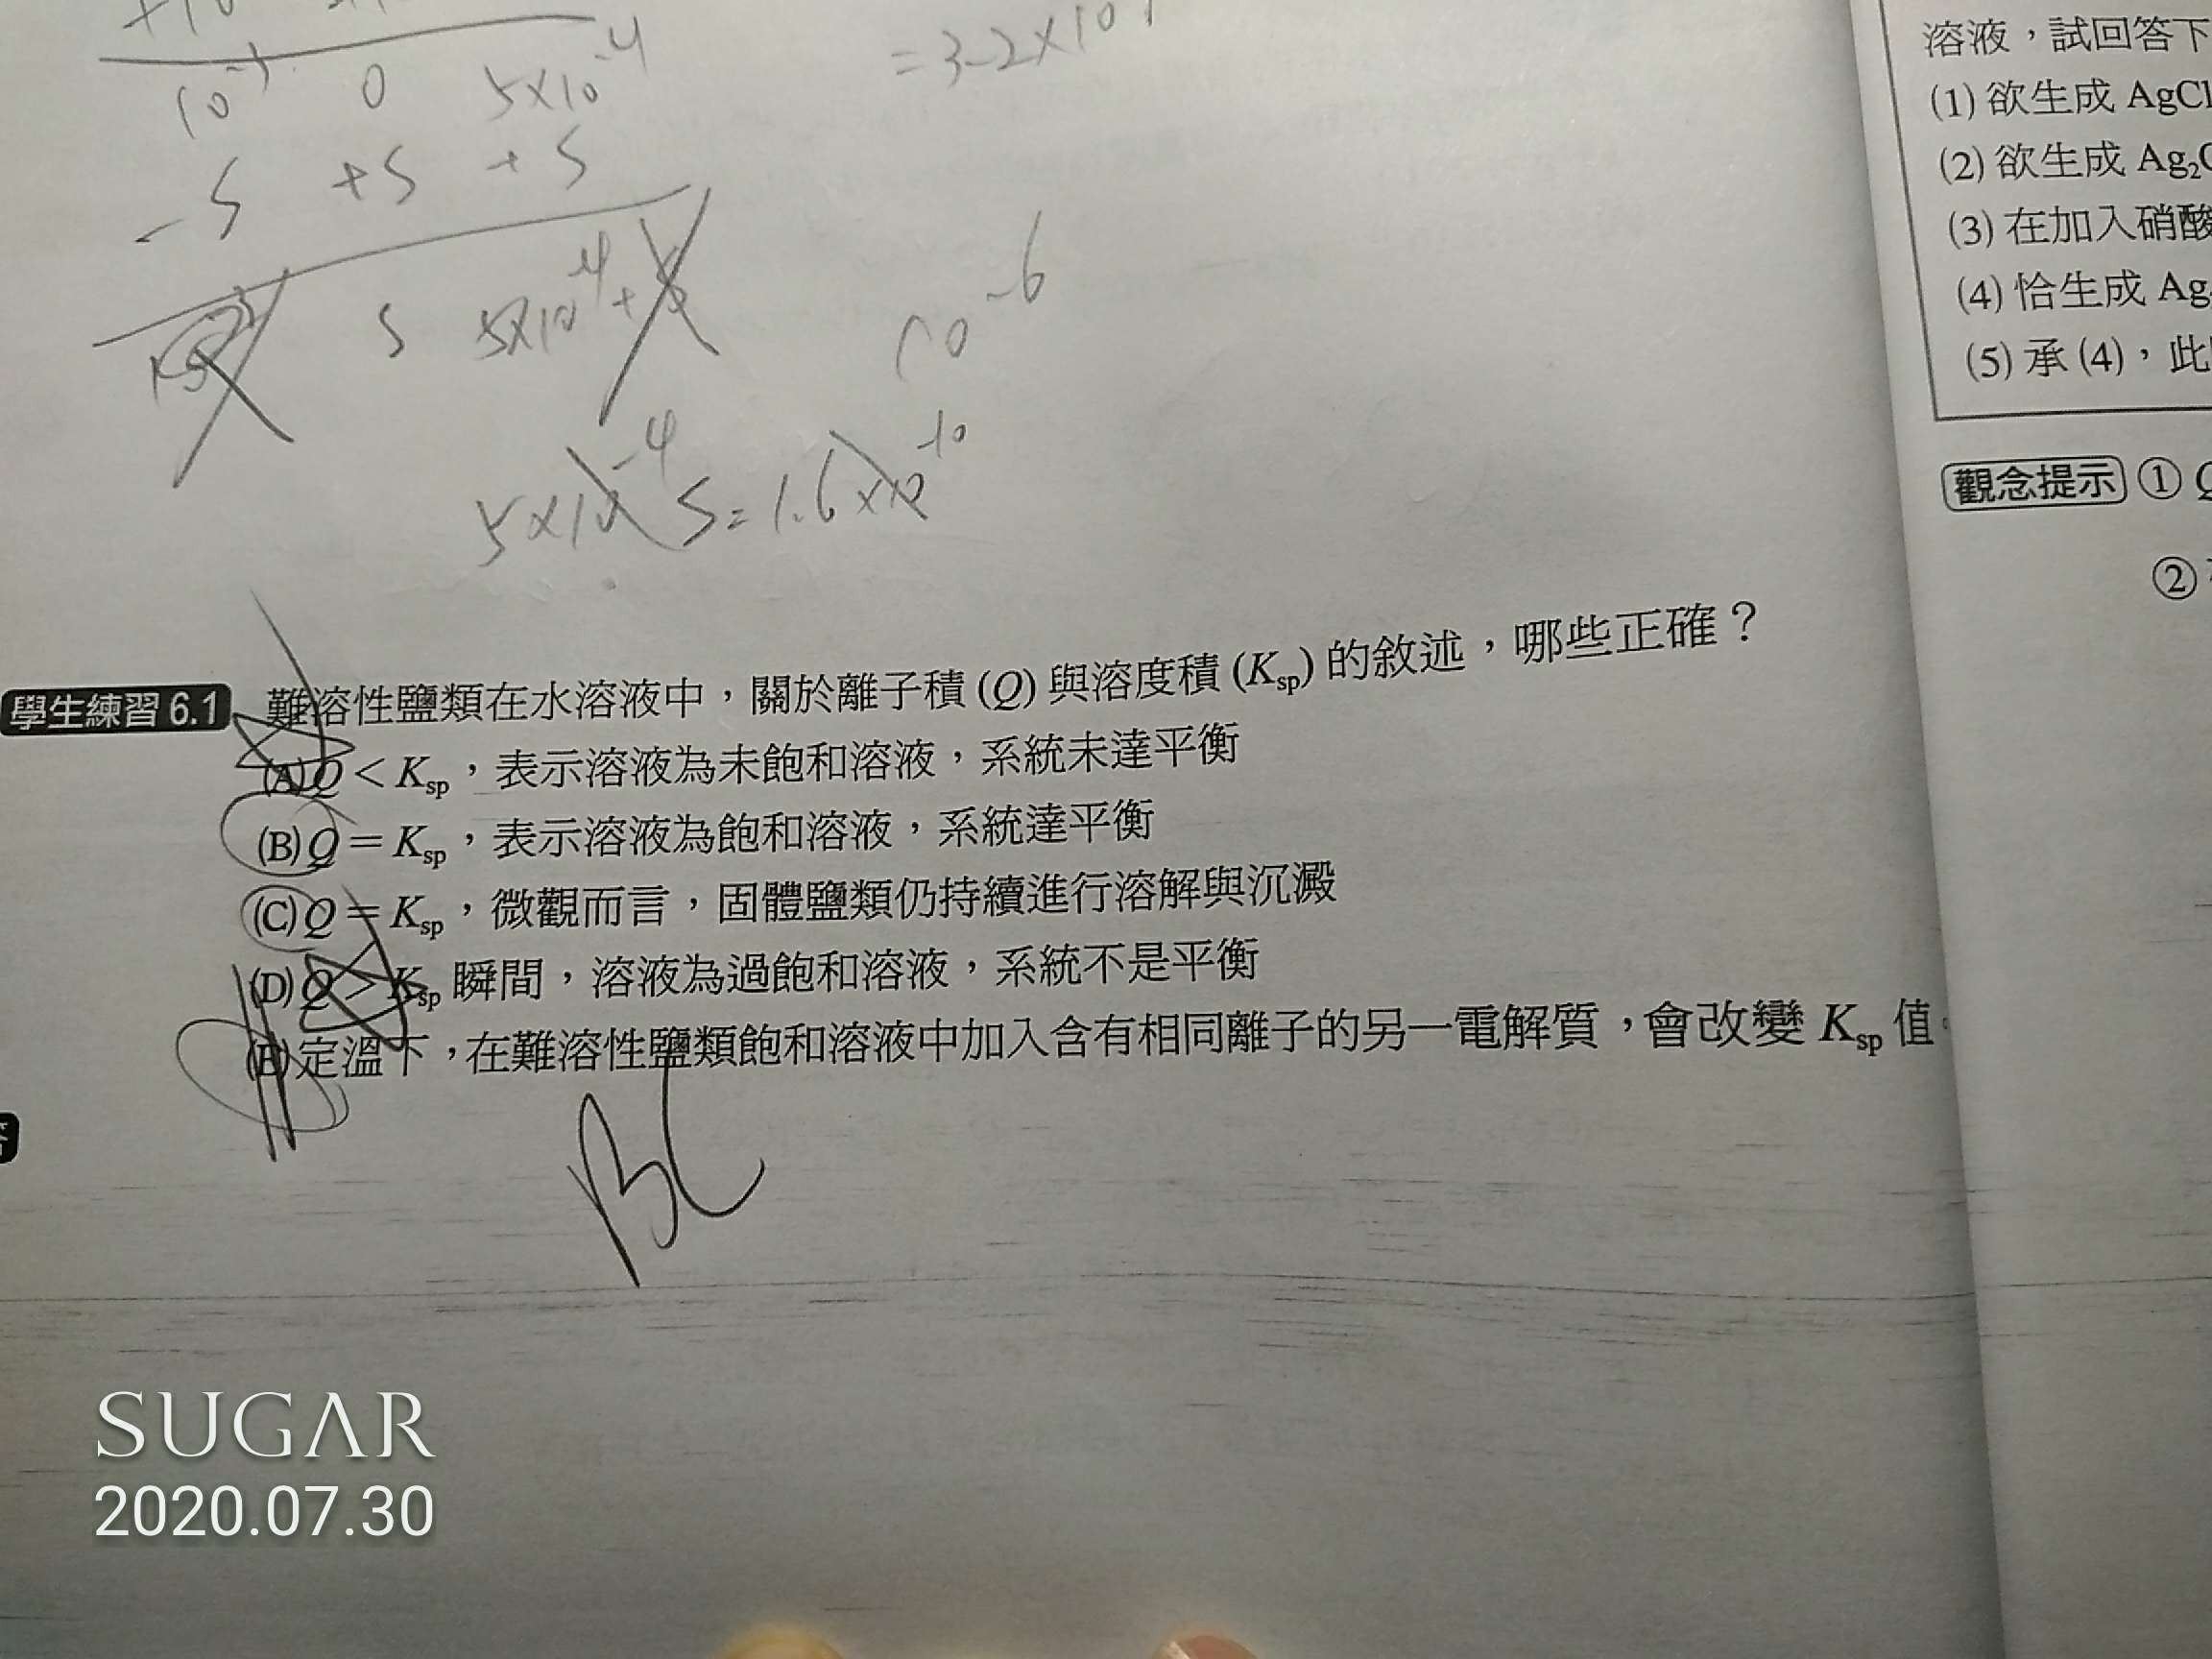 10⁻³ 0 5×10⁻⁴
-S +S +S
S 5×10⁻⁴+
10⁻⁶
5×10⁻⁴ S=1.6×10⁻¹⁰
學生練習 6.1 難溶性鹽類在水溶液中，關於離子積 (Q) 與溶度積 (Ksp) 的敘述，哪些正確？
(A) Q < Ksp，表示溶液為未飽和溶液，系統未達平衡
(B) Q = Ksp，表示溶液為飽和溶液，系統達平衡
(C) Q = Ksp，微觀而言，固體鹽類仍持續進行溶解與沉澱
(D) Q > Ksp 瞬間，溶液為過飽和溶液，系統不是平衡
(E) 定溫下，在難溶性鹽類飽和溶液中加入含有相同離子的另一電解質，會改變 Ksp 值。
BC
溶液，試回答下
(1) 欲生成 AgCl
(2) 欲生成 Ag₂C
(3) 在加入硝酸
(4) 恰生成 Ag
(5) 承 (4)，此
觀念提示 ① Q
②
SUGAR
2020.07.30